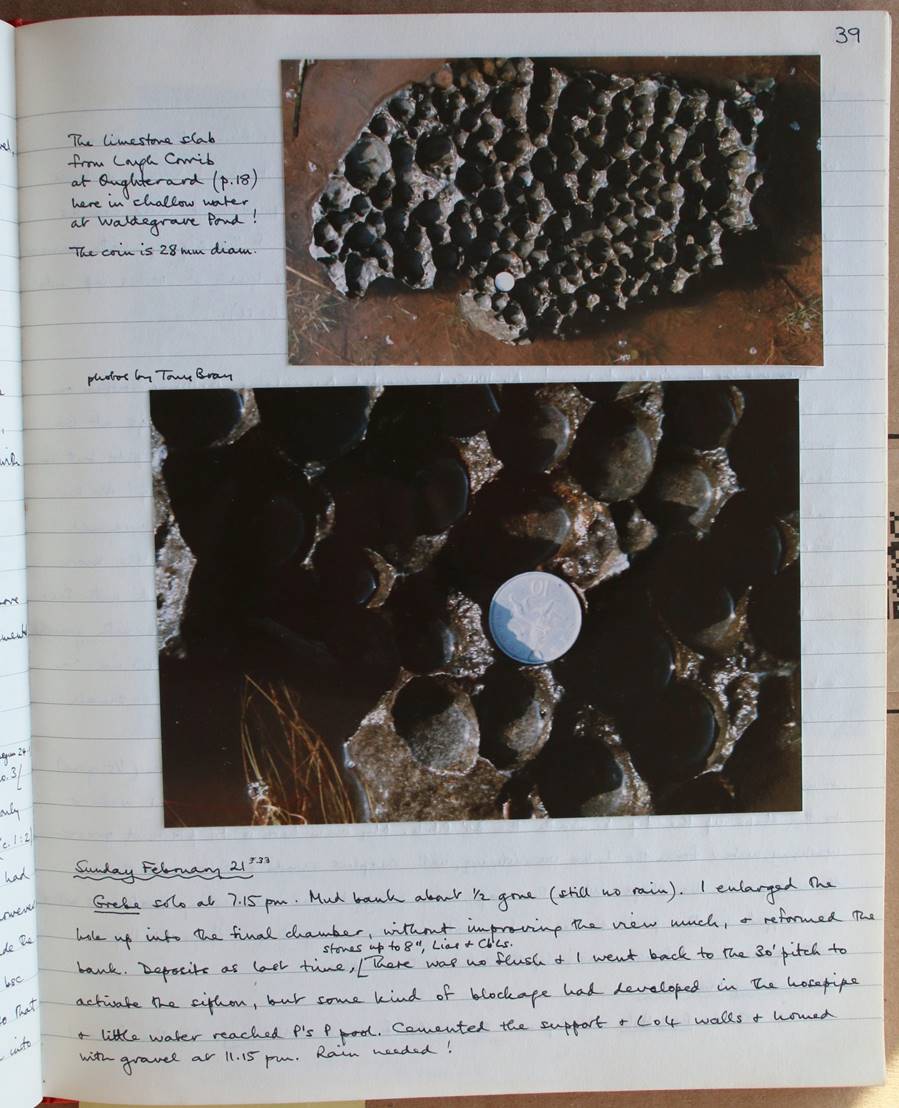 39
The limestone slab
from Lough Corrib
at Oughterard (p.18)
here in shallow water
at Waldegrave Pond !
The coin is 28 mm diam.
photos by Tony Boan
10
Sunday February 21
Grebe solo at 7.15 pm. Mud bank about 1/2 gone (still no rain). I enlarged the
hole up into the final chamber, without improving the view much, & reformed the
stones up to 8", Lias & Cb'Ls.
bank. Deposits as last time, [There was no flush & I went back to the 30' pitch to
activate the siphon, but some kind of blockage had developed in the hosepipe
& little water reached P's P pool. Cemented the support & Lo4 walls & homed
with gravel at 11.15 pm. Rain needed !